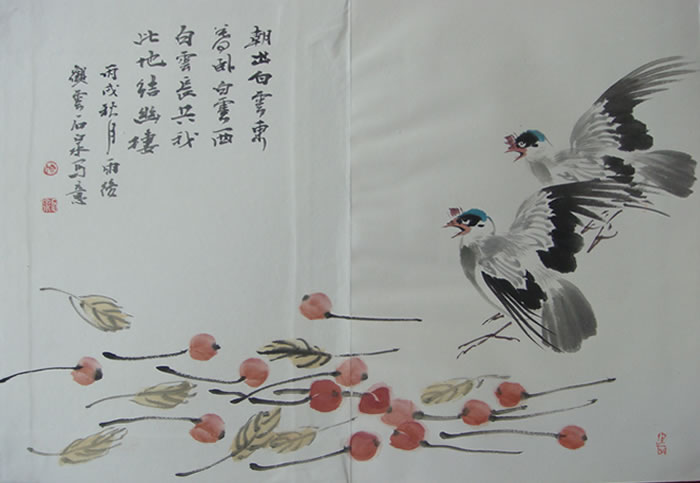 朝出白雲東
暮卧白雲西
白雲長共我
此地結幽棲
丙戌秋月雨
雲石泉写意